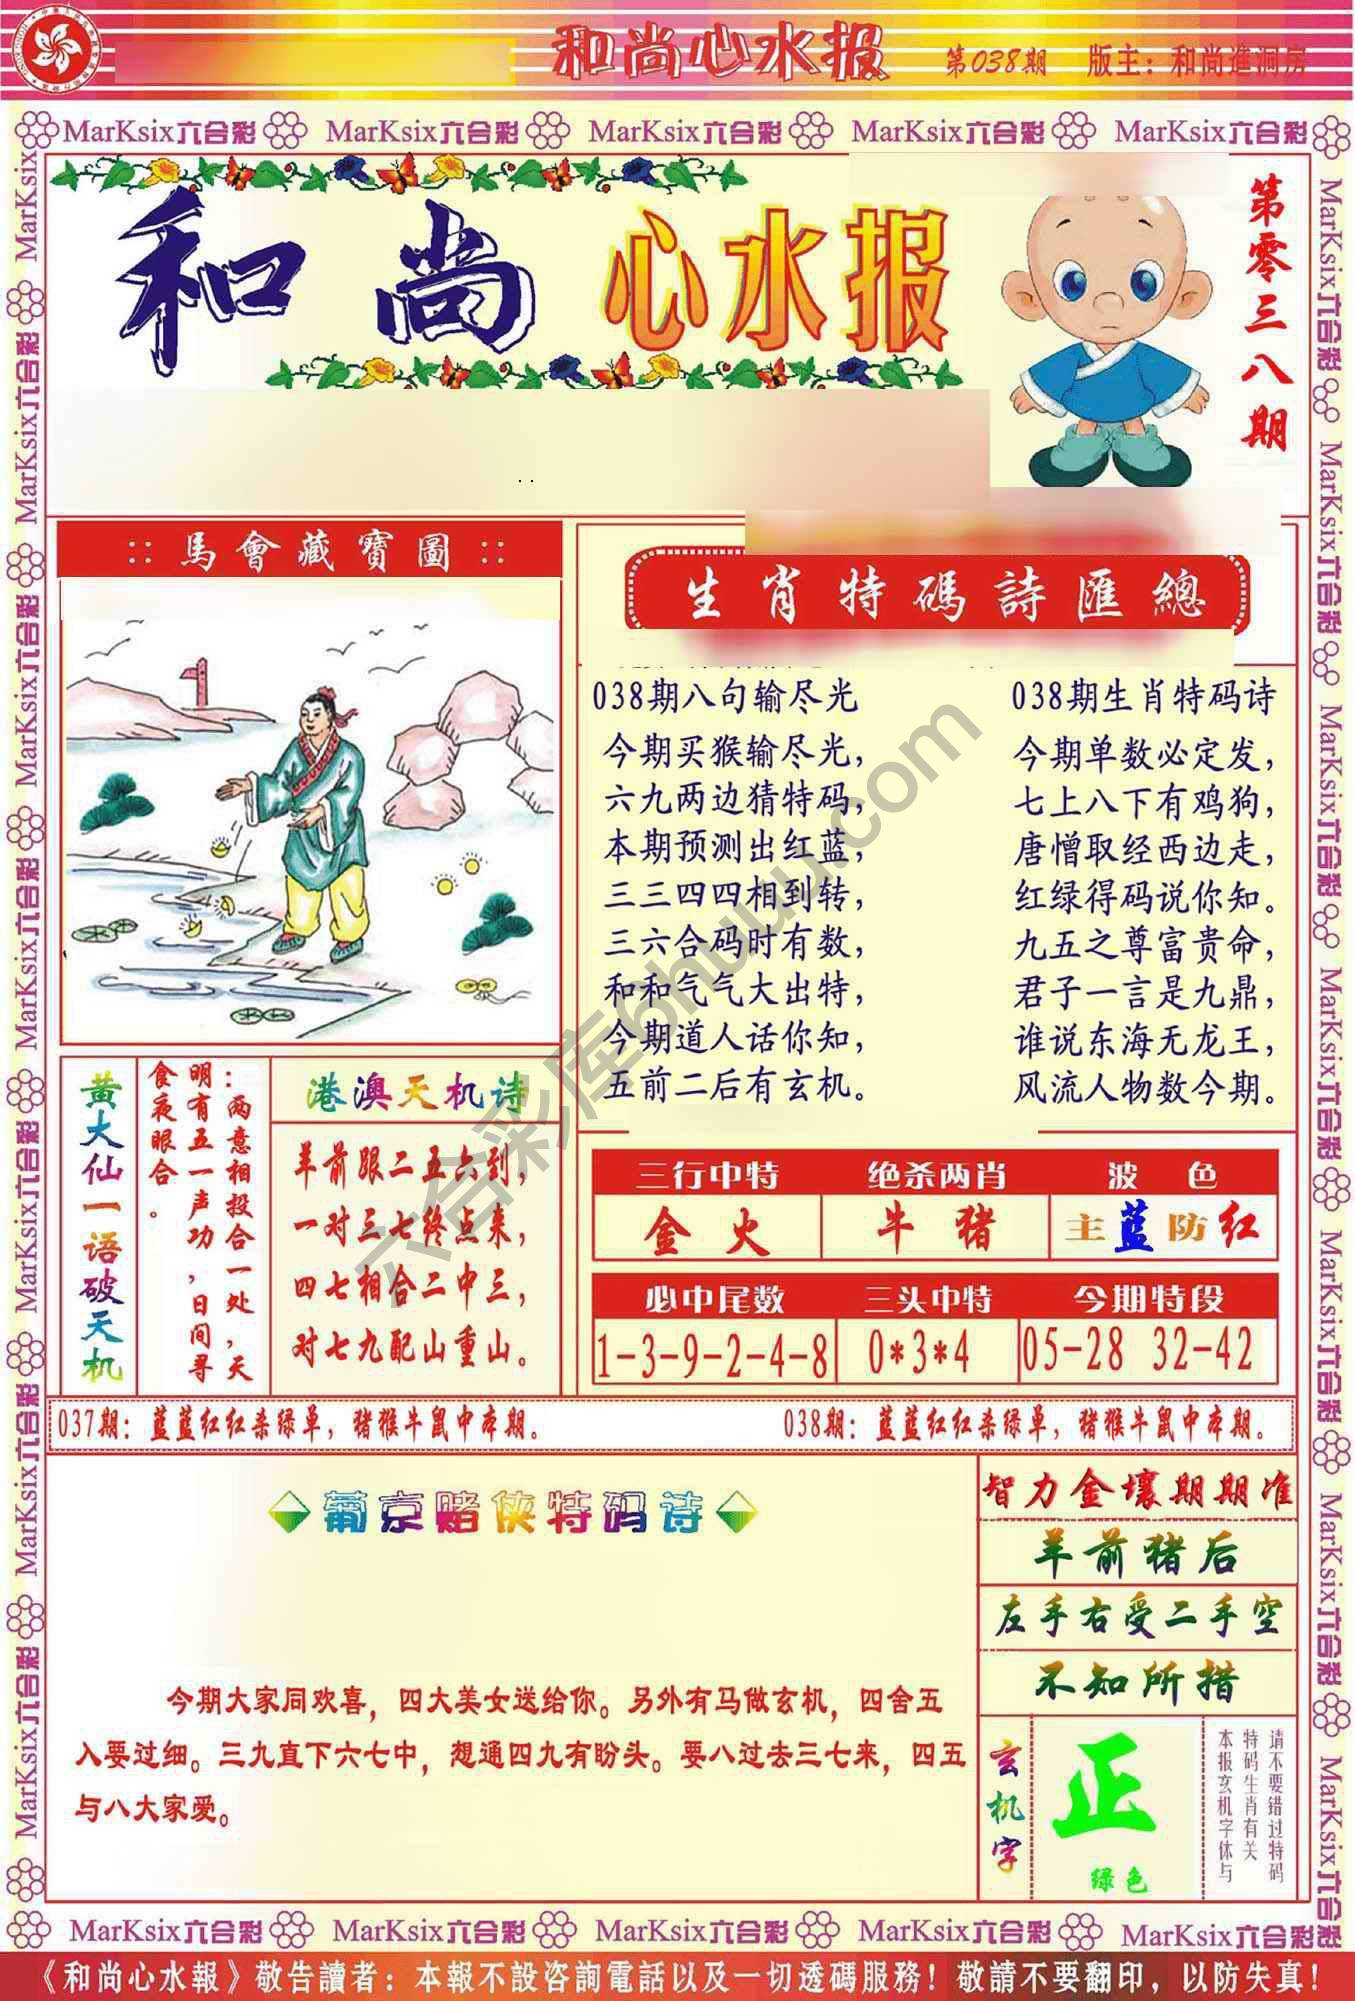 和尚心水报 第038期 版主：和尚進洞房
MarKsix六合彩 MarKsix六合彩 MarKsix六合彩 MarKsix六合彩 MarKsix六合彩
和尚心水报
第零三八期
:: 馬會藏寶圖 ::
生肖特碼詩匯總
038期八句输尽光
今期买猴输尽光，
六九两边猜特码，
本期预测出红蓝，
三三四四相到转，
三六合码时有数，
和和气气大出特，
今期道人话你知，
五前二后有玄机。
038期生肖特码诗
今期单数必定发，
七上八下有鸡狗，
唐憎取经西边走，
红绿得码说你知。
九五之尊富贵命，
君子一言是九鼎，
谁说东海无龙王，
风流人物数今期。
黄大仙一语破天机
：两意相投合一处，天
明有五一声功，日间寻
食夜眼合。
港澳天机诗
羊前跟二五六到，
一对三七终点来，
四七相合二中三，
对七九配山重山。
三行中特 绝杀两肖 波色
金火 牛猪 主蓝防红
必中尾数 三头中特 今期特段
1-3-9-2-4-8 0*3*4 05-28 32-42
037期：蓝蓝红红杀绿单，猪猴牛鼠中本期。
038期：蓝蓝红红杀绿单，猪猴牛鼠中本期。
葡京赌侠特码诗
今期大家同欢喜，四大美女送给你。另外有马做玄机，四舍五
入要过细。三九直下六七中，想通四九有盼头。要八过去三七来，四五
与八大家爱。
智力金壤期期准
羊前猪后
左手右受二手空
不知所措
玄机字
正
绿色
请不要错过特码
特码生肖有关
本报玄机字体与
六合彩库6huuu.com
MarKsix六合彩 MarKsix六合彩 MarKsix六合彩 MarKsix六合彩 MarKsix六合彩
《和尚心水報》敬告讀者：本報不設咨詢電話以及一切透碼服務！敬請不要翻印，以防失真！